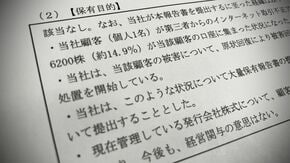 （２）【保有目的】
該当なし。なお、当社が本報告書を提出するに至った経緯は
・当社顧客（個人1名）が第三者からのインターネット取引不正
6200株（約14.9%）が当該顧客の口座に集まった状況
・当社は、当該顧客の被害について、原状回復により被害回
処置を開始している。
・当社は、このような状況について大量保有報告書の
いて提出することとした。
・現在管理している発行会社株式について、顧客
今後も、経営関与の意思はない。